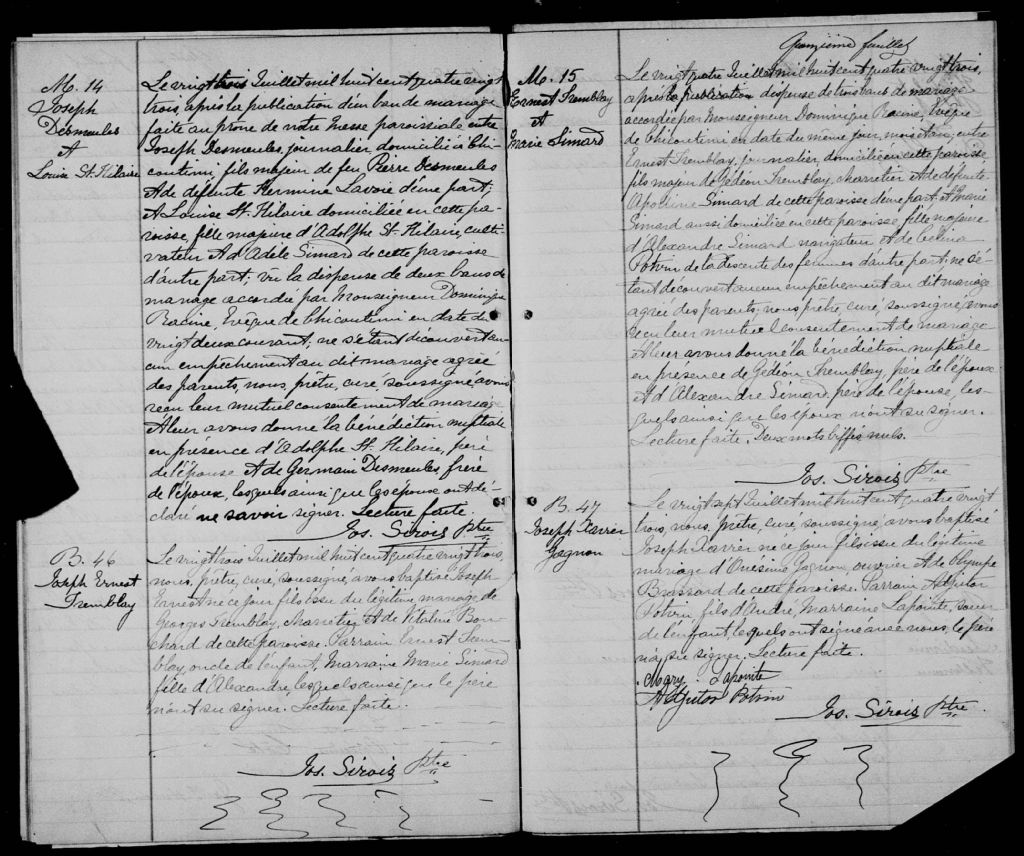 M. 14
Joseph
Desmeules
et
Louise St. Hilaire
Le vingt trois Juillet mil huit cent quatre vingt
trois, après la publication d'un ban de mariage
faite au prône de notre Messe paroissiale entre
Joseph Desmeules, journalier domicilié à Chi-
coutimi, fils majeur de feu Pierre Desmeules
et de défunte Hermine Lavoie d'une part.
et Louise St. Hilaire domiciliée en cette pa-
roisse, fille majeure d'Adolphe St. Hilaire, culti-
vateur et d'Adèle Simard de cette paroisse
d'autre part; vu la dispense de deux bans de
mariage accordée par Monseigneur Dominique
Racine, Evêque de Chicoutimi en date du
vingt deux courant; ne s'étant découvert au-
cun empêchement au dit mariage agréé
des parents, nous, prêtre, curé, soussigné avons
reçu leur mutuel consentement de mariage
et leur avons donné la bénédiction nuptiale
en présence d'Adolphe St. Hilaire, père
de l'épouse et de Germain Desmeules, frère
de l'époux, lesquels ainsi que les époux ont dé-
claré ne savoir signer. Lecture faite.
Jos. Sirois Ptre
B. 46
Joseph Ernest
Tremblay
Le vingt trois Juillet mil huit cent quatre vingt trois,
nous, prêtre, curé, soussigné, avons baptisé Joseph
Ernest né ce jour fils issu du légitime mariage de
Georges Tremblay, charretier et de Vitaline Bou-
chard de cette paroisse. Parrain Ernest Trem-
blay, oncle de l'enfant, Marraine Marie Simard
fille d'Alexandre, lesquels ainsi que le père
n'ont su signer. Lecture faite.
Jos. Sirois Ptre
feuillet
M. 15
Ernest Tremblay
et
Marie Simard
Le vingt quatre Juillet mil huit cent quatre vingt trois,
après la publication dispense de trois bans de mariage
accordée par Monseigneur Dominique Racine, Evêque
de Chicoutimi en date du même jour, mois et an; entre
Ernest Tremblay, journalier, domicilié en cette paroisse,
fils majeur de Gédéon Tremblay, charretier et de défunte
Apolline Simard de cette paroisse d'une part, et Marie
Simard aussi domiciliée en cette paroisse, fille majeure
d'Alexandre Simard navigateur et de
Potvin de la descente des femmes d'autre part; ne s'é-
tant découvert aucun empêchement au dit mariage
agréé des parents; nous, prêtre, curé, soussigné, avons
reçu leur mutuel consentement de mariage
et leur avons donné la bénédiction nuptiale
en présence de Gédéon Tremblay, père de l'époux
et d'Alexandre Simard, père de l'épouse, les-
quels ainsi que les époux n'ont su signer.
Lecture faite. Deux mots biffés nuls.
Jos. Sirois Ptre
B. 47
Joseph Xavier
Gagnon
Le vingt sept Juillet mil huit cent quatre vingt
trois, nous, prêtre, curé, soussigné, avons baptisé
Joseph Xavier né ce jour fils issu du légitime
mariage d'Onesime Gagnon, ouvrier et de Olympe
Brassard de cette paroisse. Parrain Adjutor
Potvin, fils d'André, Marraine Lapointe, soeur
de l'enfant, lesquels ont signé avec nous, le père
n'a pu signer. Lecture faite.
Mary Lapointe
Adjutor Potvin
Jos. Sirois Ptre